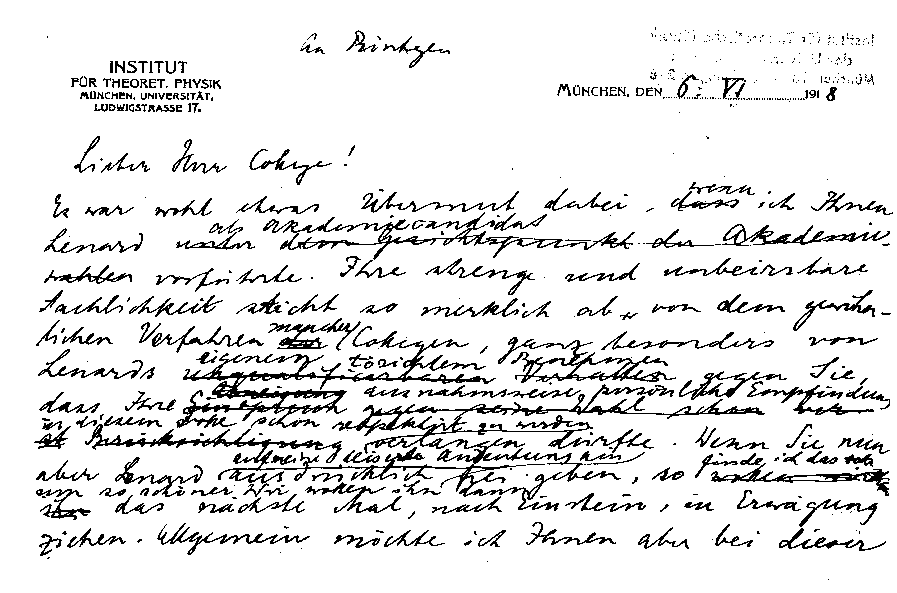 An Röntgen
INSTITUT
FÜR THEORET. PHYSIK
MÜNCHEN, UNIVERSITÄT,
LUDWIGSTRASSE 17.
MÜNCHEN, DEN 6. VI 1918
Lieber Herr College!
Es war wohl etwas Übermut dabei, dass wenn ich Ihnen
als Akademiecandidat
Lenard unter dem Gesichtspunkt der Akademie-
wahlen vorführte. Ihre strenge und unbeirrbare
Sachlichkeit sticht so merklich ab von dem gewöhn-
lichen Verfahren mancher Collegen, ganz besonders von
eigenem törichtem Benehmen
Lenards Verhalten gegen Sie
dass Ihre ausnahmsweise persönliche Empfindung
in diesem Falle schon respektiert zu werden
Berücksichtigung verlangen dürfte. Wenn Sie nun
auf meine leiseste Andeutung hin finde ich das
aber Lenard ausdrücklich frei geben, so
um so schöner. Wir wollen ihn dann
das nächste Mal, nach Einstein, in Erwägung
ziehen. Allgemein möchte ich Ihnen aber bei dieser